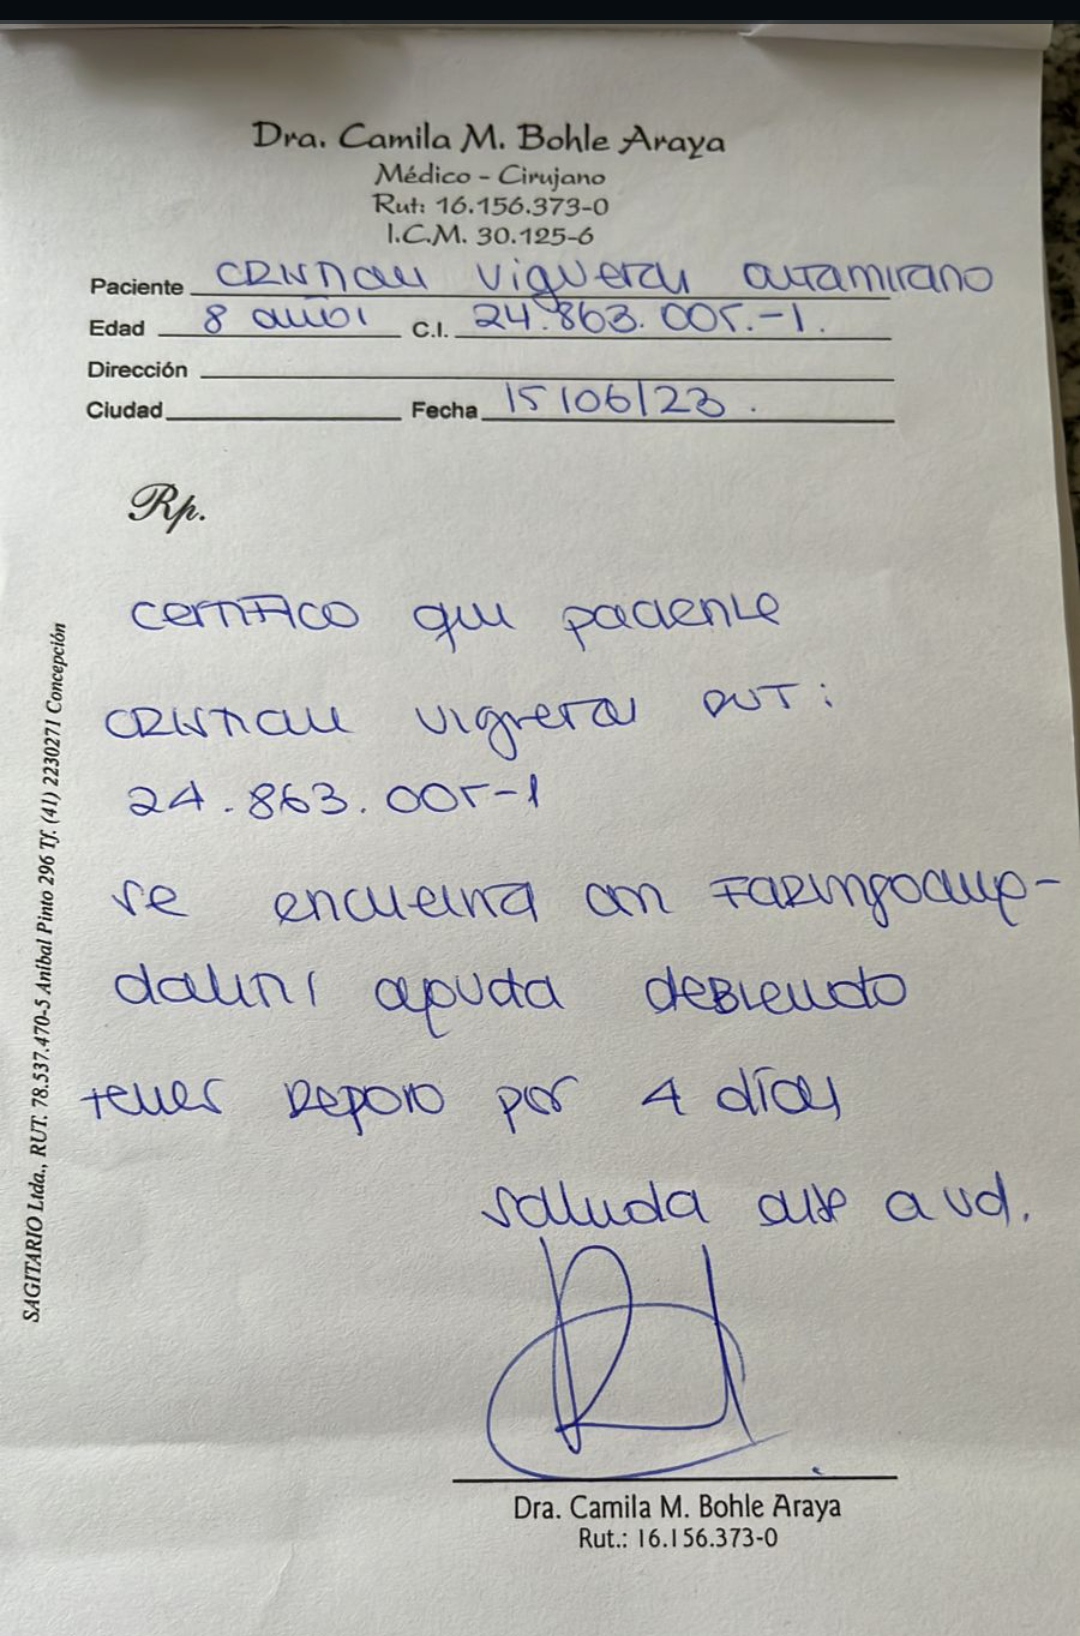 Dra. Camila M. Bohle Araya
Médico - Cirujano
Rut: 16.156.373-0
I.C.M. 30.125-6
Paciente Cristian Vigueras Altamirano
Edad 8 años C.I. 24.863.005.-1.
Dirección
Ciudad Fecha 15/06/23.
Rp.
Certifico que paciente
Cristian Vigueras RUT:
24.863.005-1
se encuentra con Faringoamig-
dalitis aguda debiendo
tener reposo por 4 días
Saluda atte a ud.
Dra. Camila M. Bohle Araya
Rut.: 16.156.373-0
SAGITARIO Ltda., RUT. 78.537.470-5 Aníbal Pinto 296 Tf. (41) 2230271 Concepción